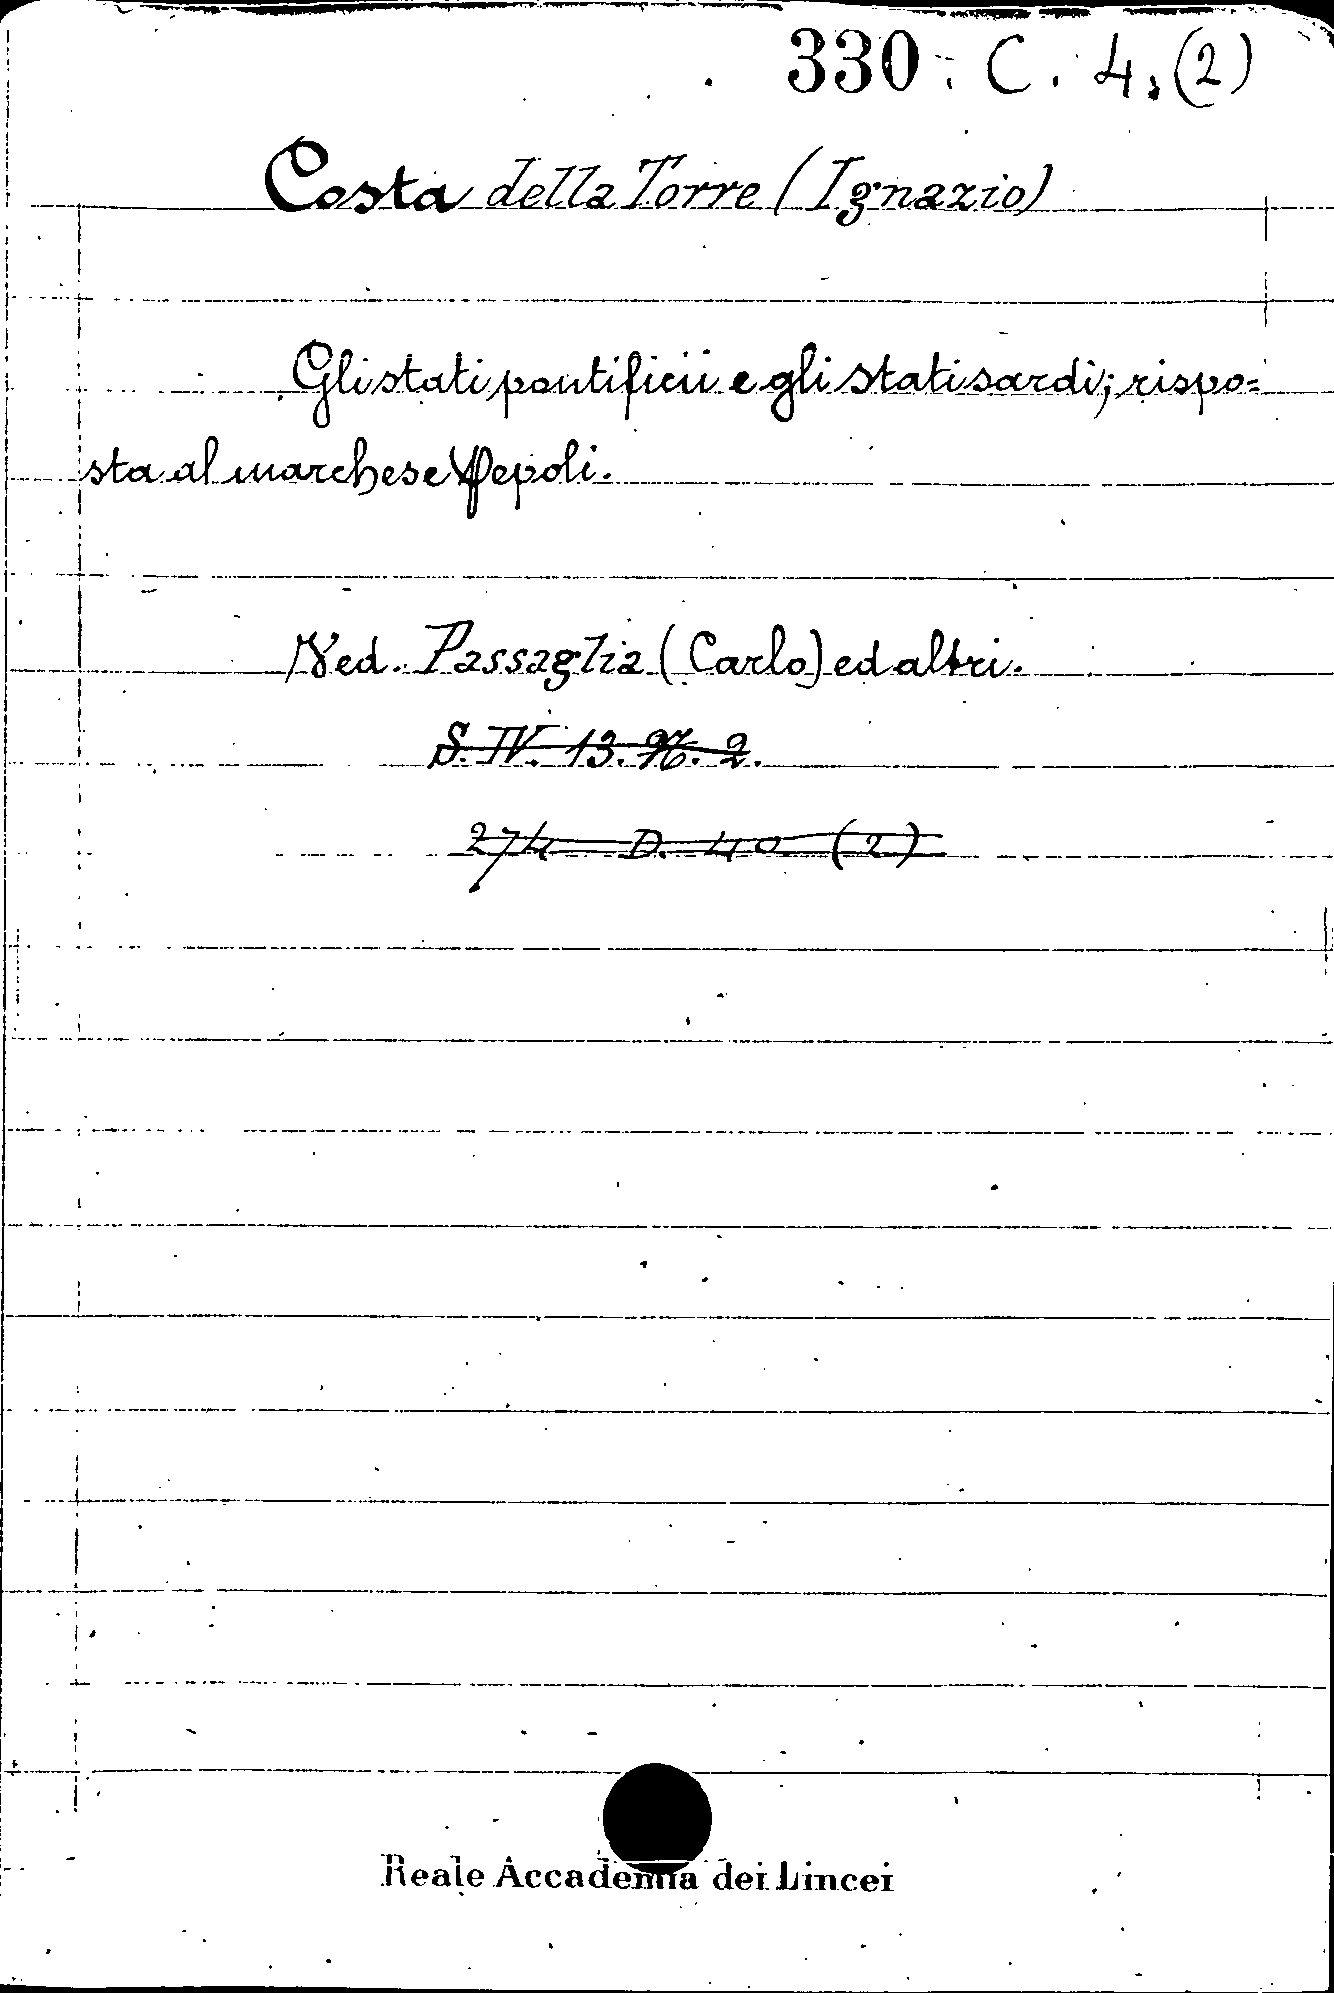 330. C. 4. (2)
Costa della Torre (Ignazio)
Gli stati pontificii e gli stati sardi; rispo=
sta al marchese Pepoli.
Ved. Passaglia (Carlo) ed altri.
S. IV. 13. N. 2.
274 D. 40 (2)
Reale Accademia dei Lincei